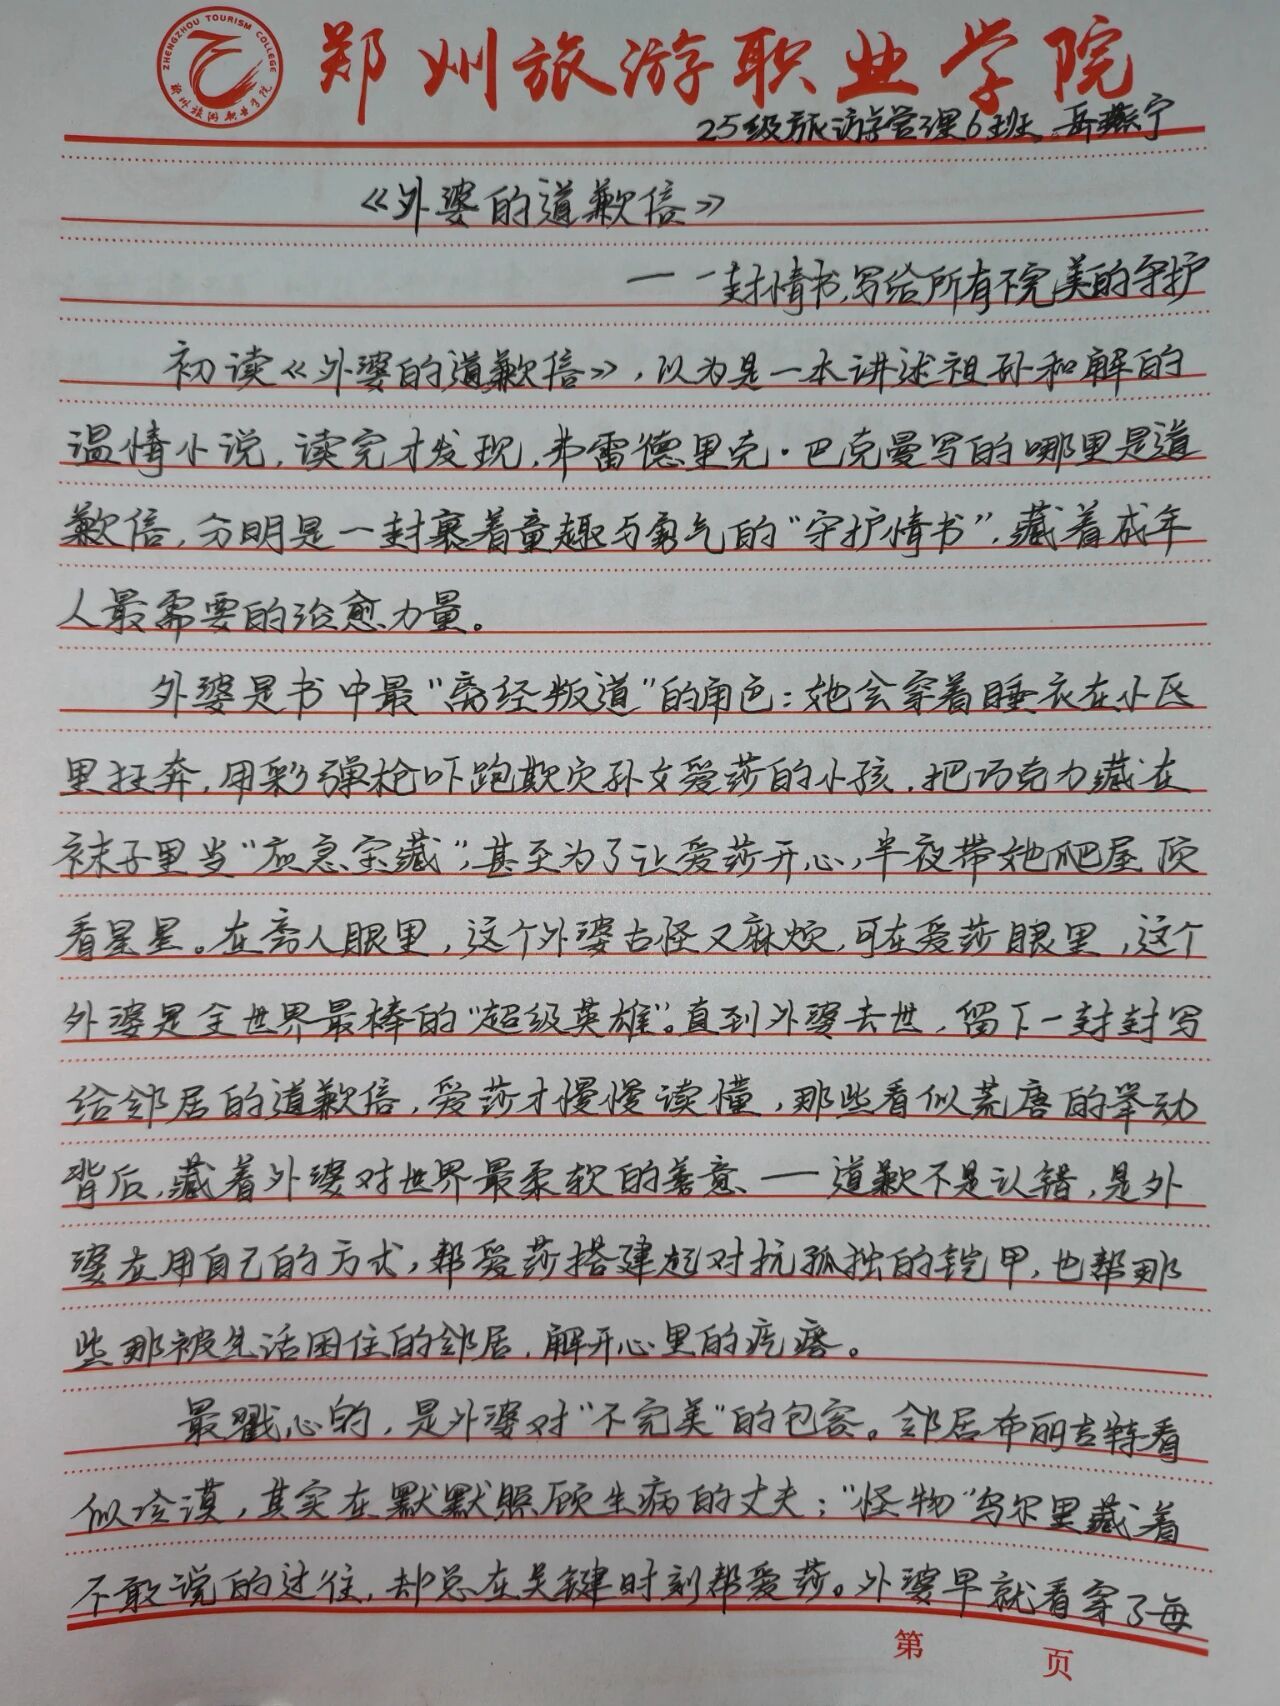 ZHENGZHOU TOURISM COLLEGE
郑州旅游职业学院
郑州旅游职业学院
25级旅游管理6班 岳燕宁
《外婆的道歉信》
——一封情书,写给所有不完美的守护
初读《外婆的道歉信》,以为是一本讲述祖孙和解的
温情小说,读完才发现,弗雷德里克·巴克曼写的哪里是道
歉信,分明是一封裹着童趣与勇气的“守护情书”,藏着成年
人最需要的治愈力量。
外婆是书中最“离经叛道”的角色:她会穿着睡衣在小区
里狂奔,用彩弹枪吓跑欺负孙女爱莎的小孩,把巧克力藏在
袜子里当“应急宝藏”,甚至为了让爱莎开心,半夜带她爬屋顶
看星星。在旁人眼里,这个外婆古怪又麻烦,可在爱莎眼里,这个
外婆是全世界最棒的“超级英雄”。直到外婆去世,留下一封封写
给邻居的道歉信,爱莎才慢慢读懂,那些看似荒唐的举动
背后,藏着外婆对世界最柔软的善意——道歉不是认错,是外
婆在用自己的方式,帮爱莎搭建起对抗孤独的铠甲,也帮那
些那被生活困住的邻居,解开心里的疙瘩。
最戳心的,是外婆对“不完美”的包容。邻居布丽吉特看
似冷漠,其实在默默照顾生病的丈夫;“怪物”乌尔里藏着
不敢说的过往,却总在关键时刻帮爱莎。外婆早就看穿了每
第 页